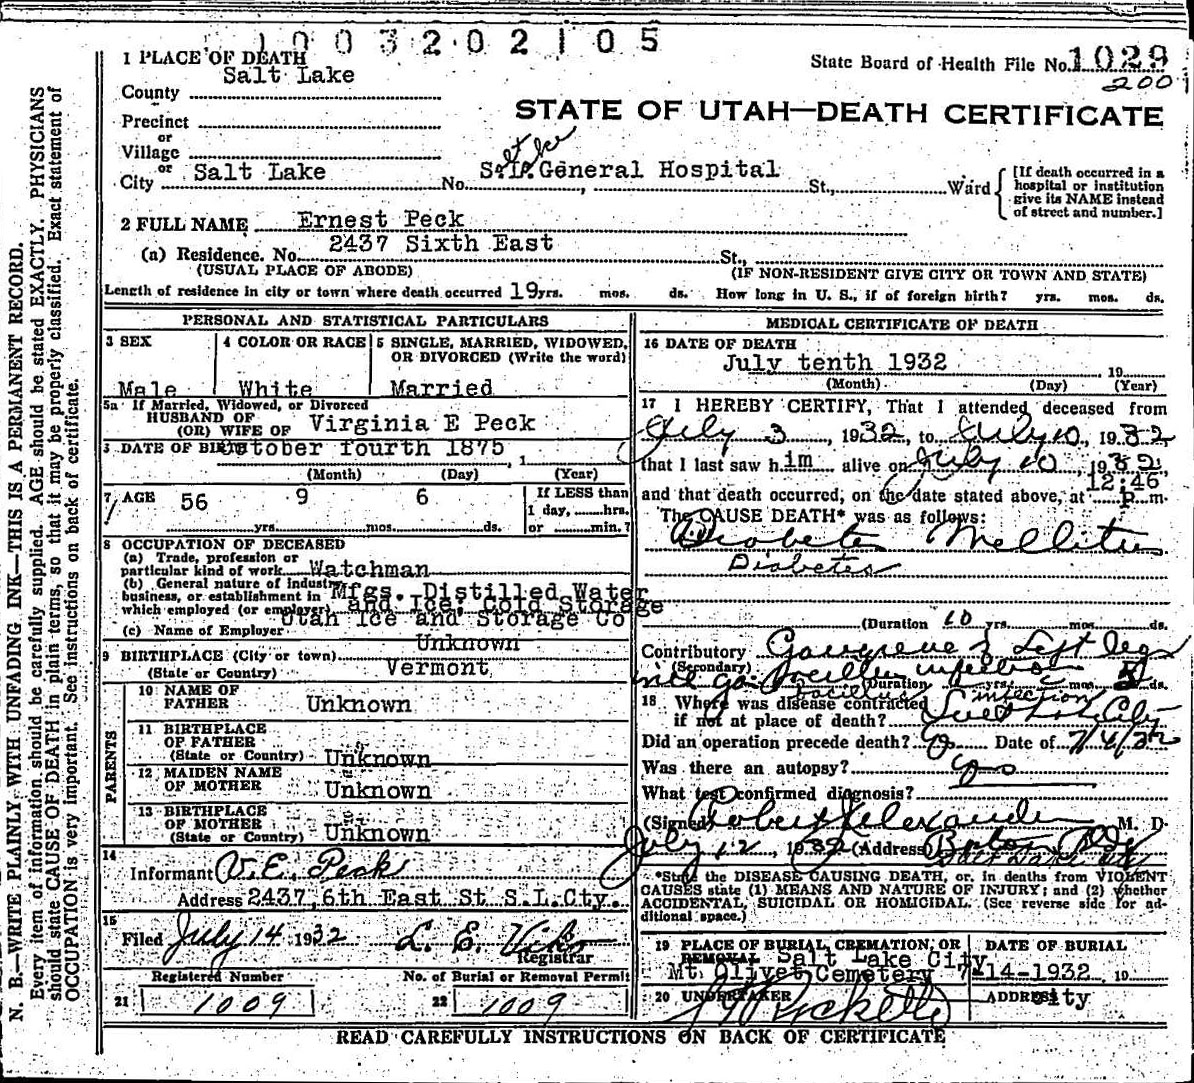 1003202105
1 PLACE OF DEATH
State Board of Health File No. 1029
200
County Salt Lake
STATE OF UTAH—DEATH CERTIFICATE
Precinct
or
Village
or
City Salt Lake No. S. L. General Hospital St., Ward
Salt Lake
[If death occurred in a
hospital or institution
give its NAME instead
of street and number.]
2 FULL NAME Ernest Peck
(a) Residence. No. 2437 Sixth East St.,
(USUAL PLACE OF ABODE) (IF NON-RESIDENT GIVE CITY OR TOWN AND STATE)
Length of residence in city or town where death occurred 19 yrs. mos. ds. How long in U. S., if of foreign birth? yrs. mos. ds.
PERSONAL AND STATISTICAL PARTICULARS
3 SEX
Male
4 COLOR OR RACE
White
5 SINGLE, MARRIED, WIDOWED,
OR DIVORCED (Write the word)
Married
5a If Married, Widowed, or Divorced
HUSBAND OF
(OR) WIFE OF Virginia E Peck
6 DATE OF BIRTH October fourth 1875, 1
(Month) (Day) (Year)
7 AGE 56 yrs. 9 mos. 6 ds.
If LESS than
1 day, hrs.
or min.?
8 OCCUPATION OF DECEASED
(a) Trade, profession or
particular kind of work Watchman
(b) General nature of industry,
business, or establishment in Mfgs. Distilled Water
which employed (or employer) and Ice, Cold Storage
(c) Name of Employer Utah Ice and Storage Co
9 BIRTHPLACE (City or town) Unknown
(State or Country) Vermont
PARENTS
10 NAME OF
FATHER Unknown
11 BIRTHPLACE
OF FATHER
(State or Country) Unknown
12 MAIDEN NAME
OF MOTHER Unknown
13 BIRTHPLACE
OF MOTHER
(State or Country) Unknown
14
Informant V. E. Peck
Address 2437 6th East St S.L.Cty.
15
Filed July 14 1932 L. E. Viko
Registrar
Registered Number No. of Burial or Removal Permit
21 1009 22 1009
MEDICAL CERTIFICATE OF DEATH
16 DATE OF DEATH
July tenth 1932 19
(Month) (Day) (Year)
17 I HEREBY CERTIFY, That I attended deceased from
July 3, 1932, to July 10, 1932
that I last saw him alive on July 10, 1932,
and that death occurred, on the date stated above, at 12:46 P. m.
The CAUSE DEATH* was as follows:
Diabetes Mellitus
Diabetes
(Duration 10 yrs. mos. ds.
Contributory Gangrene of Left leg
(Secondary) gas bacillus infection
bacillus infection
(Duration yrs. mos. 5 ds.
18 Where was disease contracted
if not at place of death? Salt Lake City
Did an operation precede death? Date of 7/4/32
Was there an autopsy?
What test confirmed diagnosis?
(Signed) Robert Alexander M. D.
July 12, 1932 (Address) Boston Bldg
Salt Lake City
*State the DISEASE CAUSING DEATH, or, in deaths from VIOLENT
CAUSES state (1) MEANS AND NATURE OF INJURY; and (2) whether
ACCIDENTAL, SUICIDAL OR HOMICIDAL. (See reverse side for ad-
ditional space.)
19 PLACE OF BURIAL, CREMATION, OR
REMOVAL Salt Lake City
Mt. Olivet Cemetery
DATE OF BURIAL
7-14-1932 19
20 UNDERTAKER
ADDRESS city
READ CAREFULLY INSTRUCTIONS ON BACK OF CERTIFICATE
N. B.—WRITE PLAINLY WITH UNFADING INK—THIS IS A PERMANENT RECORD.
Every item of information should be carefully supplied. AGE should be stated EXACTLY. PHYSICIANS
should state CAUSE OF DEATH in plain terms, so that it may be properly classified. Exact statement of
OCCUPATION is very important. See instructions on back of certificate.